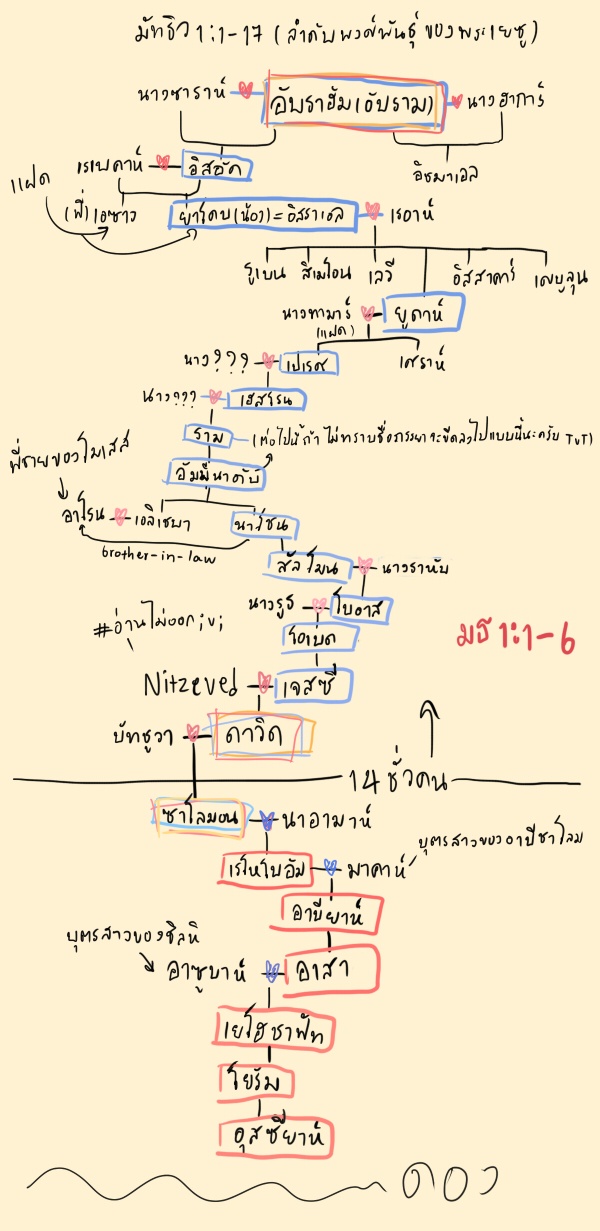 มัทธิว 1:1-17 (ลำดับพงศ์พันธุ์ของพระเยซู)
นางซาราห์ อับราฮัม (อับราม) นางฮาการ์
เรเบคาห์ อิสอัค อิชมาเอล
แฝด
(พี่) เอซาว ยาโคบ (น้อง) = อิสราเอล เรอาห์
รูเบน สิเมโอน เลวี อิสสาคาร์ เศบูลุน
นางทามาร์ ยูดาห์
(แฝด)
นาง??? เปเรศ เศราห์
นาง??? เฮสโรน
ราม (ต่อไปนี้ถ้าไม่ทราบชื่อภรรยาจะขีดลงไปแบบนี้นะครับ TvT)
พี่ชายของโมเสส อัมมีนาดับ
อาโรน เอลีเชบา นาโชน
brother-in-law
สัลโมน นางราหับ
นางรูธ โบอาส
#อ่านไม่ออก;v; โอเบด
มธ 1:1-6
Nitzeved เจสซี
บัทชูวา ดาวิด
14 ชั่วคน
ซาโลมอน นาอามาห์
บุตรสาวของอาบีชาโลม
เรโหโบอัม มาคาห์
อาบียาห์
บุตรสาวของชิลหิ
อาซูบาห์ อาสา
เยโฮชาฟัท
โยรัม
อุสซียาห์
ดอง